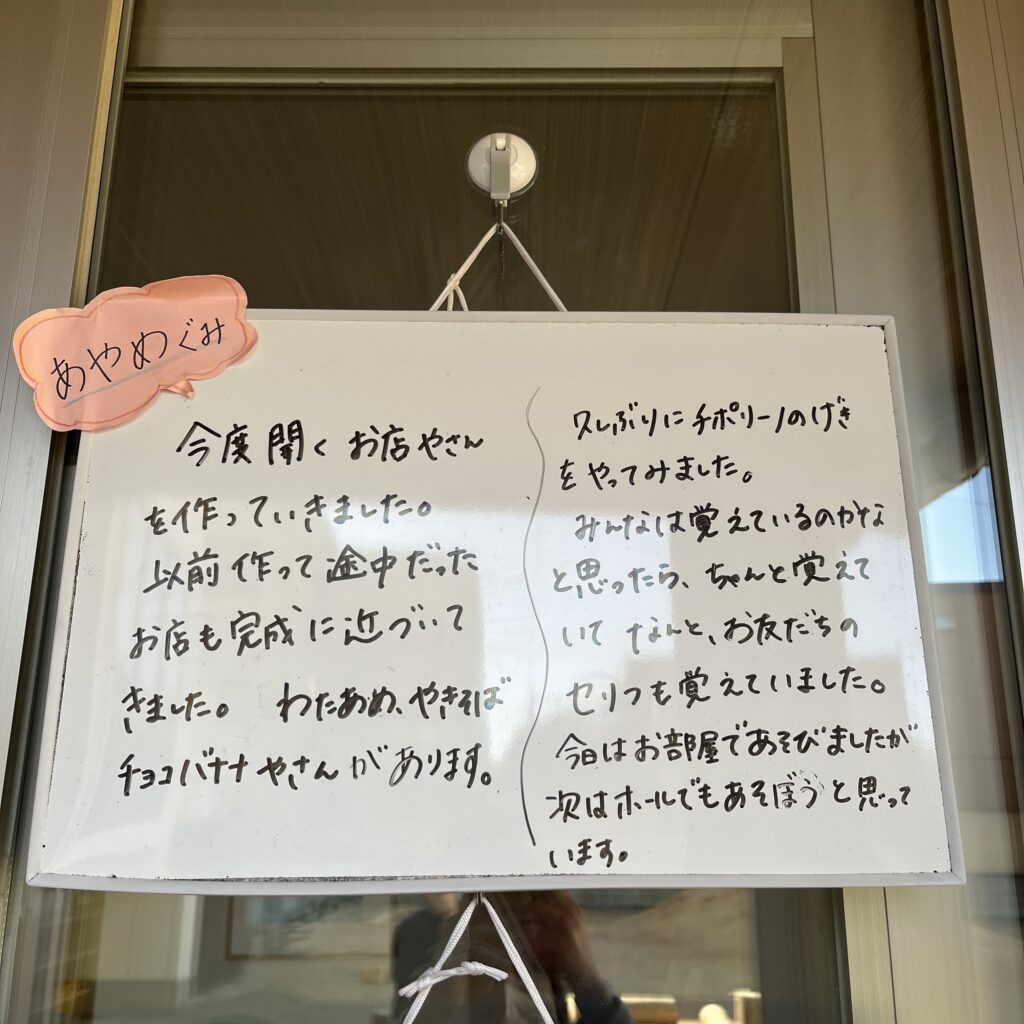 あやめぐみ
今度開くお店やさん
を作っていきました。
以前作って途中だった
お店も完成に近づいて
きました。 わたあめ、やきそば
チョコバナナやさんがあります。
久しぶりにチポリーノのげき
をやってみました。
みんなは覚えているのかな
と思ったら、ちゃんと覚えて
いて なんと、お友だちの
セリフも覚えていました。
今日はお部屋であそびましたが
次はホールでもあそぼうと思って
います。